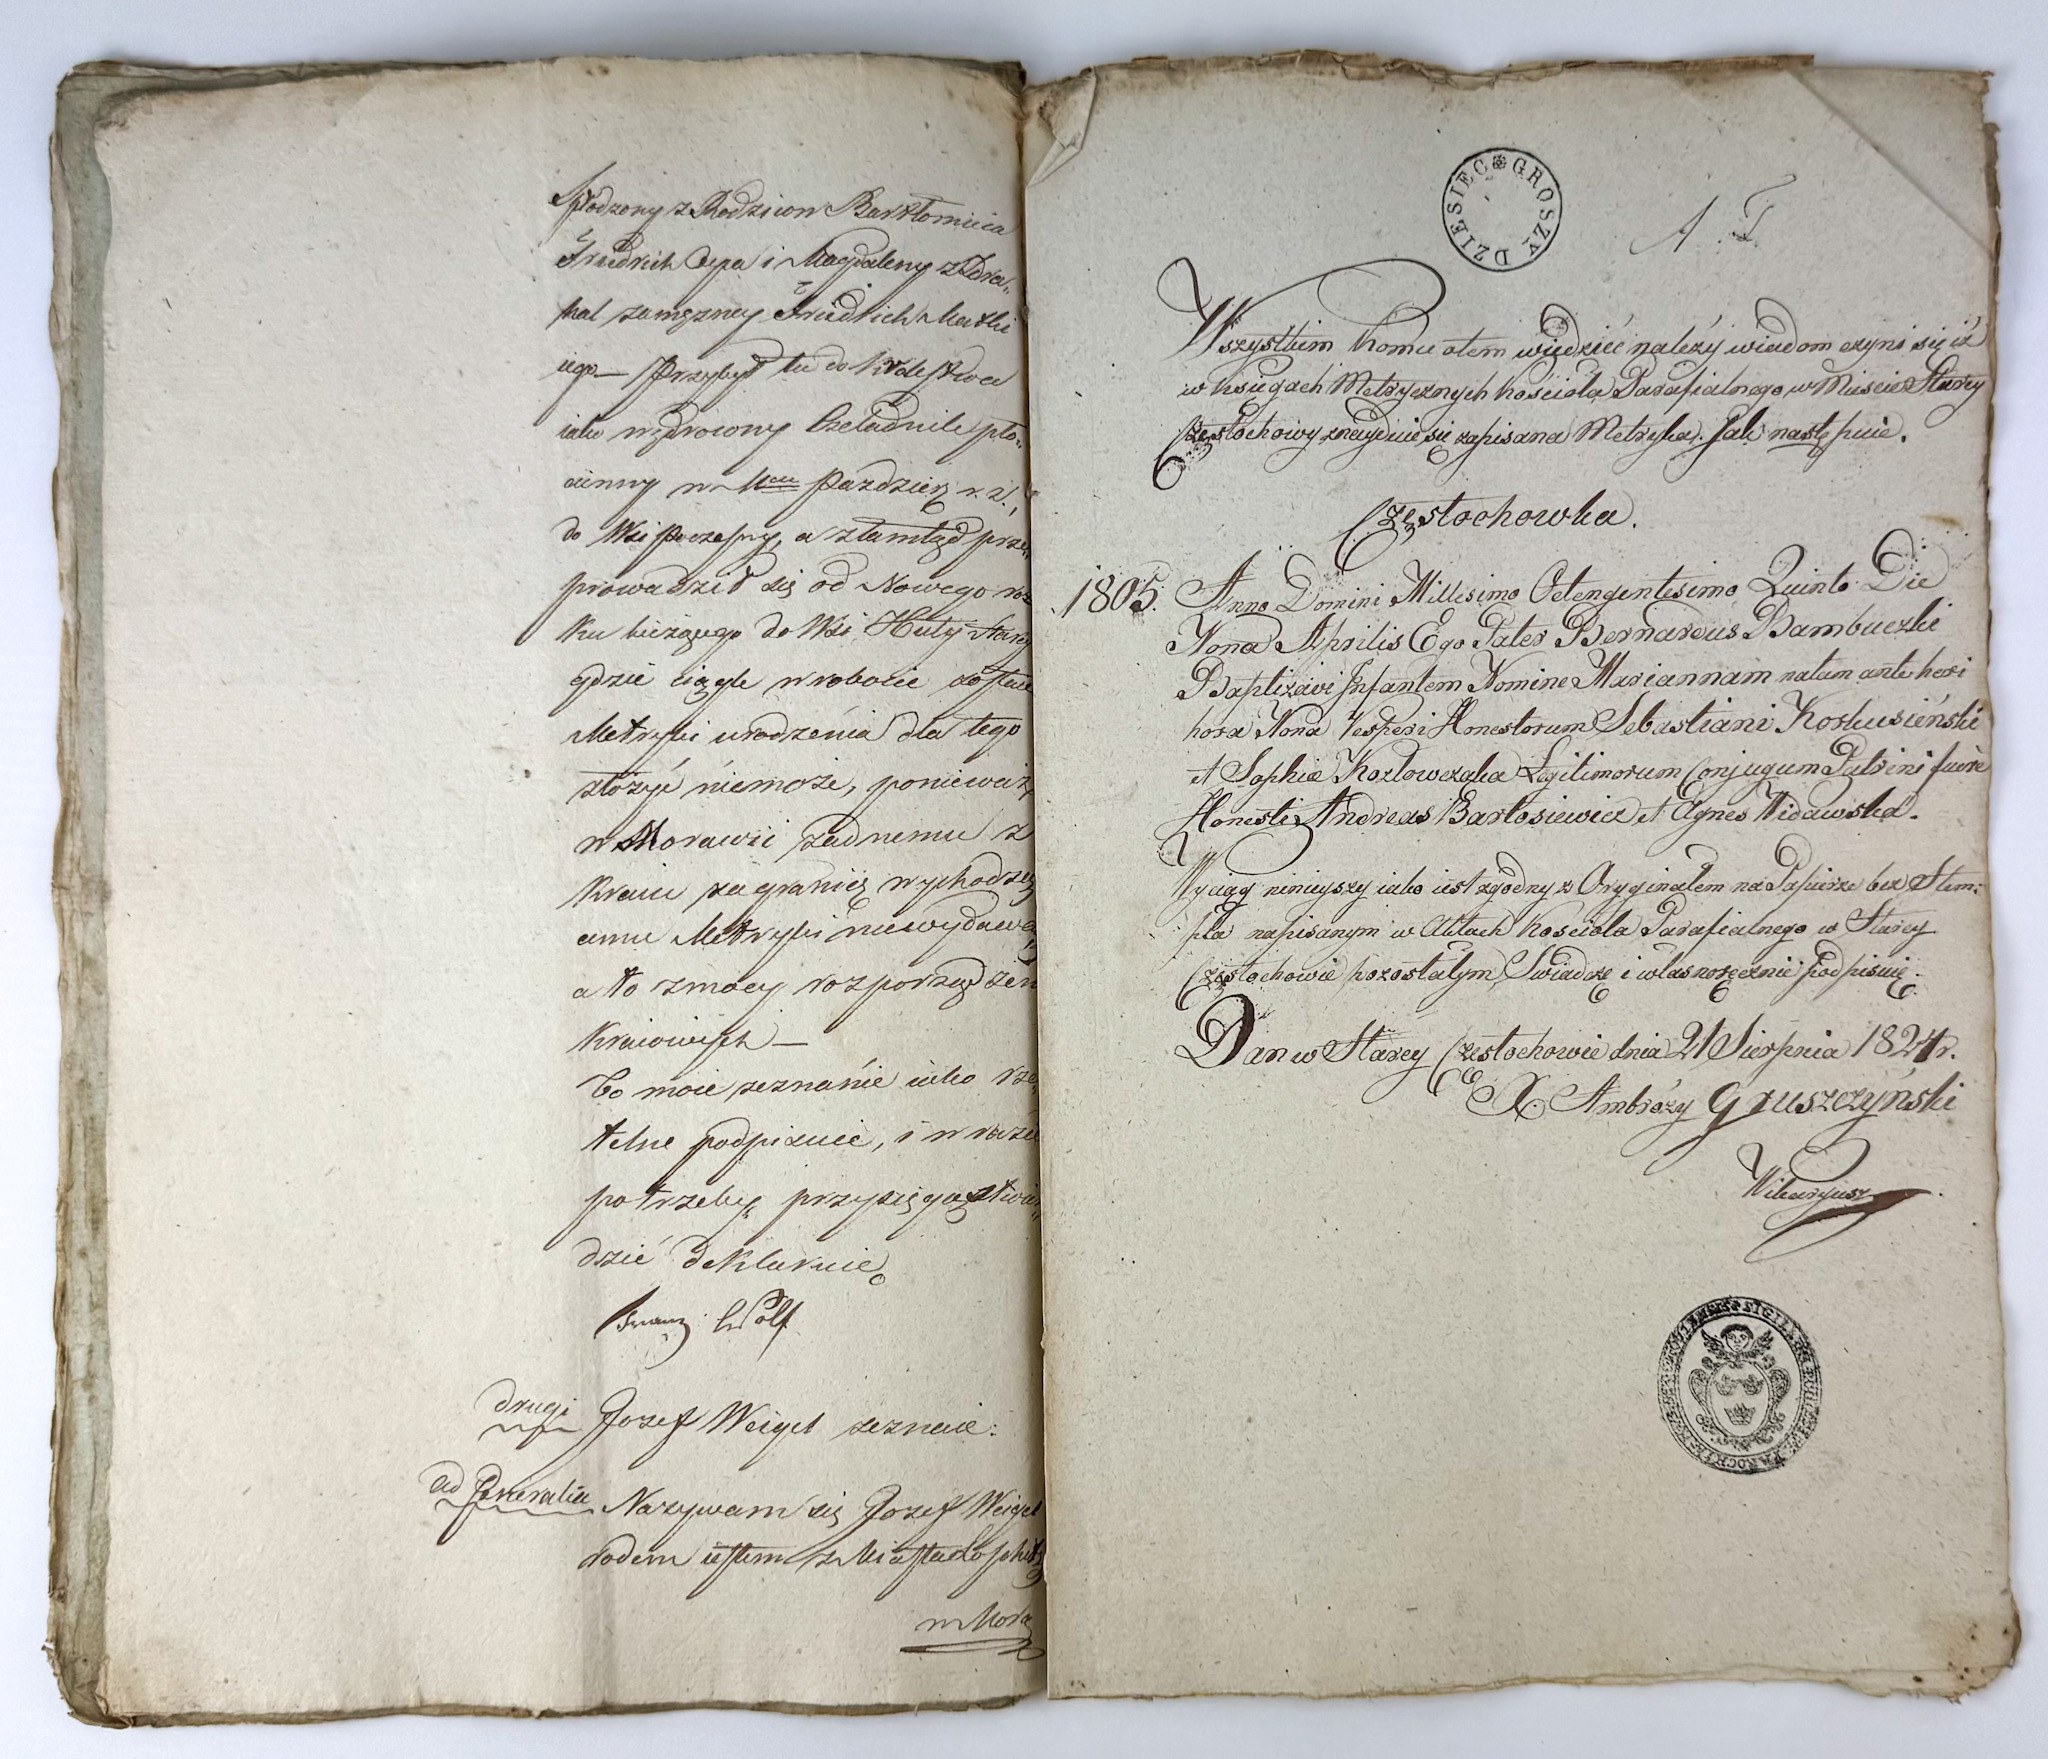 Spłodzony z Rodziców Bartłomieia
Friedrich Oyca i Magdaleny z
hal zamężney Friedrich Matki
iego — przybył tu do Królestwa
iako wędrowny Czeladnik płó„
cienny w M<sup>cu</sup> Paździer: r. z.,
do Wsi Poczesny, a ztamtąd prze„
prowadził się od Nowego ro„
ku bieżącego do Wsi Huty Starey
gdzie ciągle w robocie zostaie
Metryki urodzenia dla tego
złożyć niemoże, ponieważ
w Morawii żadnemu z
Kraiu za granicę wychodzą„
cemu Metryki niewydawa„
a to z mocy rozporządzeń
Kraiowych —
To moie zeznanie iako rze„
telne podpisuie, i w razie
potrzeby przysięgą stwier„
dzić deklaruie
Franz Wolf
drugi Jozef Weigel zeznaie:
ad Generalia Nazywam się Jozef Weigel
rodem iestem z Miasta
w Mora
DZIESIĘĆ GROSZY
Wszystkim komu otem wiedzieć należy wiadom czyni się iż
w Księgach Metrycznych Kościoła Parafialnego w Mieście Starey
Częstochowy znayduie się zapisana Metryka. Jak następuie.
Częstochowka.
1805. Anno Domini Millesimo Octengentesimo Quinto Die
Nona Aprilis Ego Pater Bernardus Bambuczki
Baptizavi Infantem Nomine Mariannam natam ante heri
hora Nona Vesperi Honestorum Sebastiani Korkusiński
et Sophie Kozłowczaka Legitimorum Conjugum Patrini fuere
Honesti Andreas Bartosiewicz et Agnes Widawska.
Wyciąg ninieyszy iako iest zgodny z Oryginałem na Papierze bez Stem:
pla napisanym w Aktach Kościoła Parafialnego w Starey
Częstochowie pozostałym, Swiadczę i własnoręcznie podpisuię.
Dan w Starey Częstochowie dnia 21 Sierpnia 1824 r.
X. Ambroży Gruszczyński
Wikaryusz